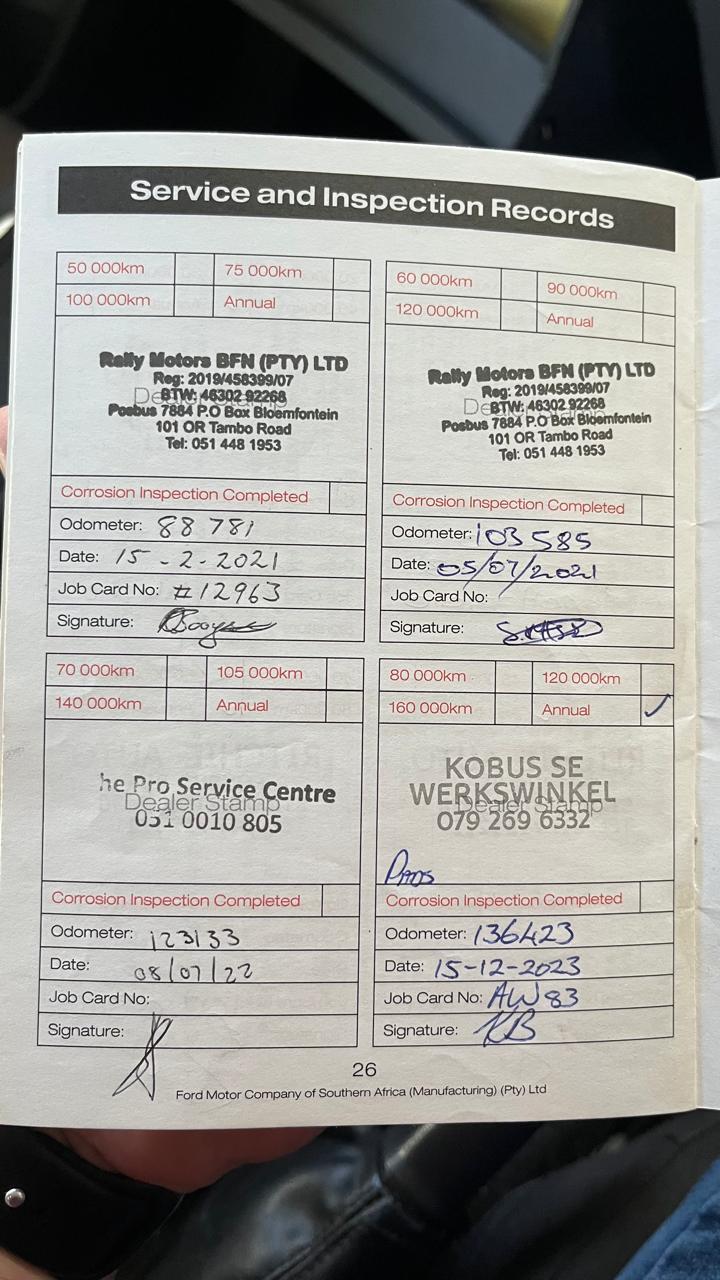 Service and Inspection Records
50 000km 75 000km
100 000km Annual
Rally Motors BFN (PTY) LTD
Reg: 2019/458399/07
BTW: 46302 92268
Posbus 7884 P.O Box Bloemfontein
101 OR Tambo Road
Tel: 051 448 1953
Corrosion Inspection Completed
Odometer: 88 781
Date: 15-2-2021
Job Card No: #12963
Signature:
60 000km 90 000km
120 000km Annual
Rally Motors BFN (PTY) LTD
Reg: 2019/458399/07
BTW: 46302 92268
Posbus 7884 P.O Box Bloemfontein
101 OR Tambo Road
Tel: 051 448 1953
Corrosion Inspection Completed
Odometer: 103 585
Date: 05/07/2021
Job Card No:
Signature:
70 000km 105 000km
140 000km Annual
he Pro Service Centre
Dealer Stamp
051 0010 805
Corrosion Inspection Completed
Odometer: 123133
Date: 08/07/22
Job Card No:
Signature:
80 000km 120 000km
160 000km Annual ✓
KOBUS SE
WERKSWINKEL
Dealer Stamp
079 269 6332
PADS
Corrosion Inspection Completed
Odometer: 136423
Date: 15-12-2023
Job Card No: AW83
Signature: KB
26
Ford Motor Company of Southern Africa (Manufacturing) (Pty) Ltd